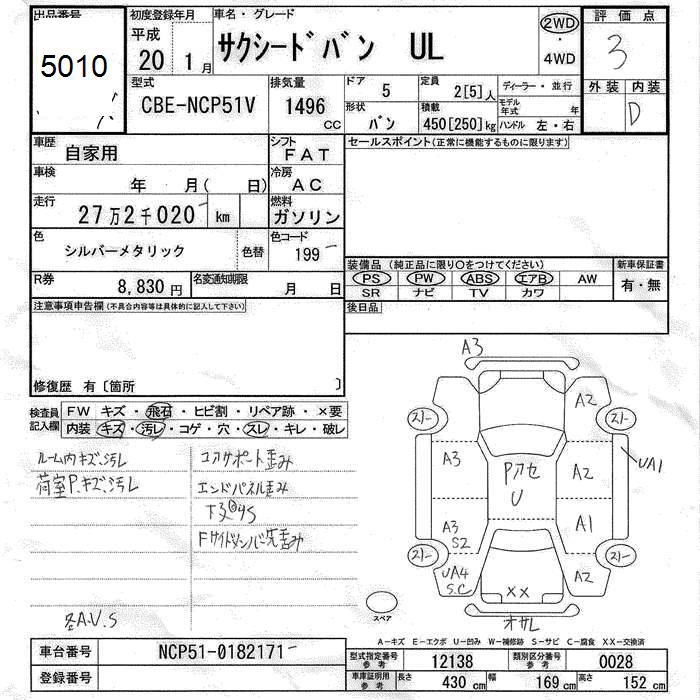 出品番号
5010
初度登録年月
平成
20 1月
車名・グレード
サクシードバン UL
2WD
・
4WD
評価点
3
外装 内装
D
型式
CBE-NCP51V
排気量
1496
CC
ドア
5
定員
2[5]人
形状
バン
積載
450[250]kg
ディーラー・並行
モデル年式 年
ハンドル 左・右
車歴
自家用
シフト
FAT
セールスポイント(正常に機能するものに限ります)
車検
年 月( 日)
冷房
AC
走行
27万2千020 km
燃料
ガソリン
色
シルバーメタリック
色替
色コード
199
装備品(純正品に限り○をつけてください)
新車保証書
PS PW ABS エアB AW
SR ナビ TV カワ
有・無
R券
8,830円
名変通知期限
月 日
注意事項申告欄(不具合内容等は具体的に記入して下さい)
後日品
修復歴 有〔箇所 〕
検査員記入欄
FW キズ・飛石・ヒビ割・リペア跡・×要
内装 キズ・汚レ・コゲ・穴・スレ・キレ・破レ
ルーム内キズ、汚レ
荷室P.キズ、汚レ
コアサポート歪み
エンドパネル歪み
Fサイドメンバー先歪み
各A.V.S
A3
A2
A3
Pアセ
U
A2
UA1
A3
S2
A1
UA4
S.C
XX
A2
オサレ
スペア
A-キズ E-エクボ U-凹み W-補修跡 S-サビ C-腐食 XX-交換済
車台番号
NCP51-0182171
登録番号
型式指定番号
参考
12138
類別区分番号
参考
0028
車庫証明用
参考
長さ
430 cm
幅
169 cm
高さ
152 cm